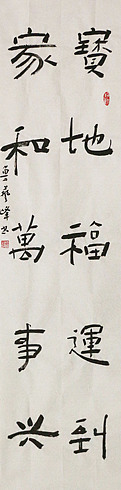 寶地福運到
家和萬事兴